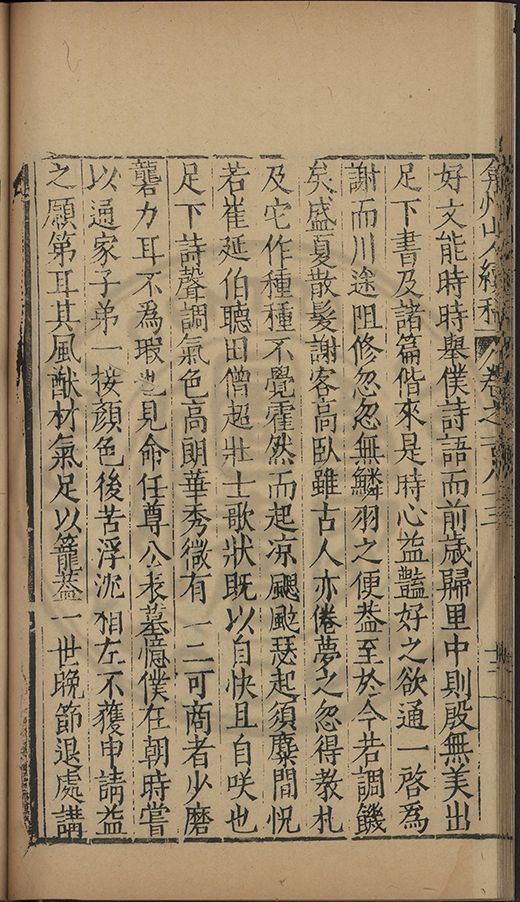 弇州山人續稿 卷之一百八十三 十二
好文能時時舉僕詩語而前歲歸里中則殷無美出
足下書及諸篇偕來是時心益豔好之欲通一啓爲
謝而川途阻修忽忽無鱗羽之便益至於今若調饑
矣盛夏散髮謝客高臥雖古人亦倦夢之忽得教札
及它作種種不覺霍然而起凉颸颰瑟起須麋間怳
若崔延伯聽田僧超壯士歌狀既以自快且自咲也
足下詩聲調氣色高朗華秀微有一二可商者少磨
礱力耳不爲瑕也見命任尊公表墓憶僕在朝時嘗
以通家子弟一接顔色後苦浮沈相左不獲申請益
之願第耳其風猷材氣足以籠蓋一世晚節退處講